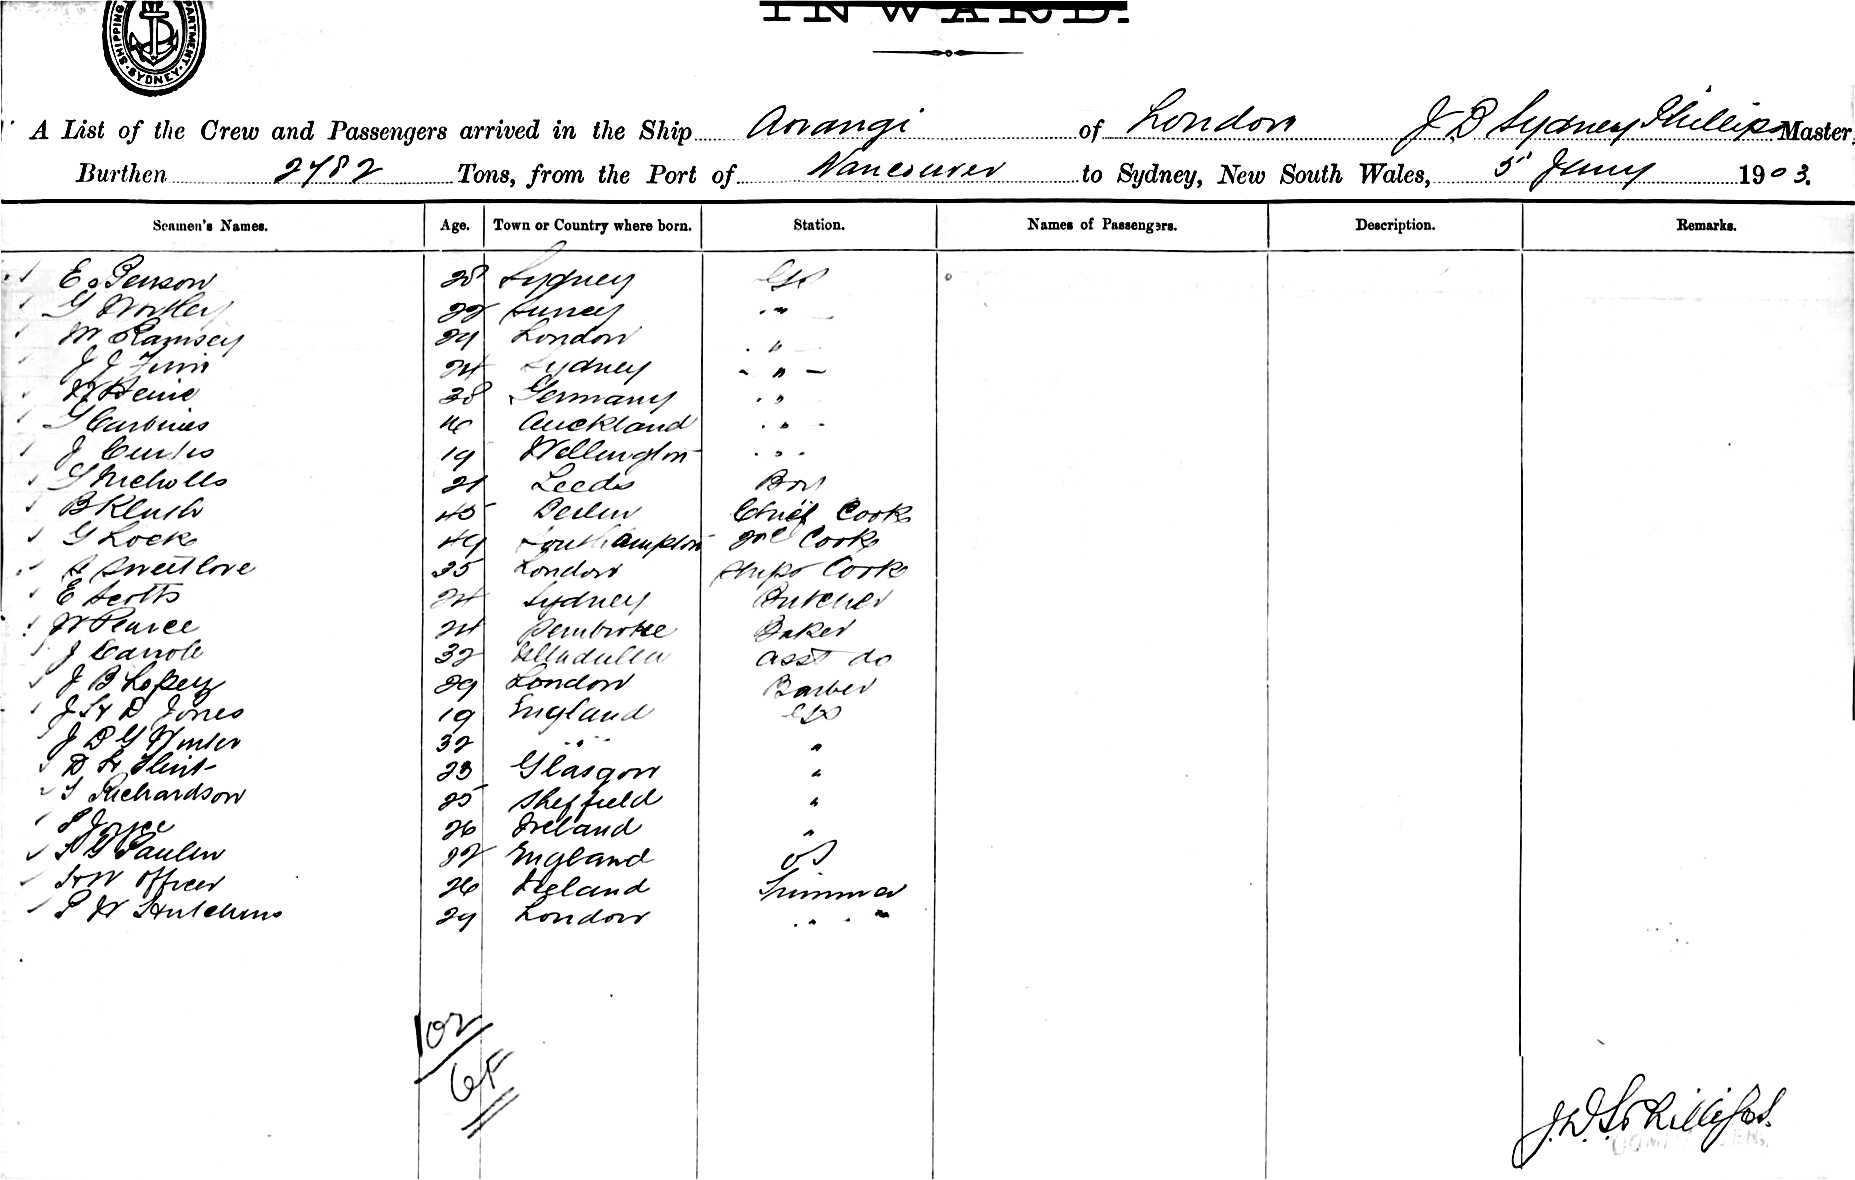 SHIPPING DEPARTMENT SYDNEY
INWARD.
A List of the Crew and Passengers arrived in the Ship Aorangi of London J D Sydney Phillips Master,
Burthen 2782 Tons, from the Port of Vancouver to Sydney, New South Wales, 5 Jany 1903.
Seamen's Names. Age. Town or Country where born. Station. Names of Passengers. Description. Remarks.
E Penson 28 Sydney
G Wortley 22 Surrey "
W Ramsey 29 London "
J J 24 Sydney "
W Heine 38 Germany "
G Curbines Auckland "
J Curtis 19 Wellington "
G Nicholls 21 Leeds Boy
B 45 Berlin Chief Cook
G Lock 49 Southampton 2nd Cook
A Sweetlove 35 London Ships Cook
E Scotts 24 Sydney Butcher
W Pearce 24 Pembroke Baker
J Carrole 32 Ulladulla asst do
J B Lopez 29 London Barber
J H D Jones 19 England
J D G Winter 32 " "
D H Flint 23 Glasgow "
T Richardson 25 Sheffield "
P Joyce 26 Ireland "
T G Paulin 22 England OS
H W Officer 26 Ireland Trimmer
P W Hutchins 29 London "
102
6F
J.D.S. Phillips.